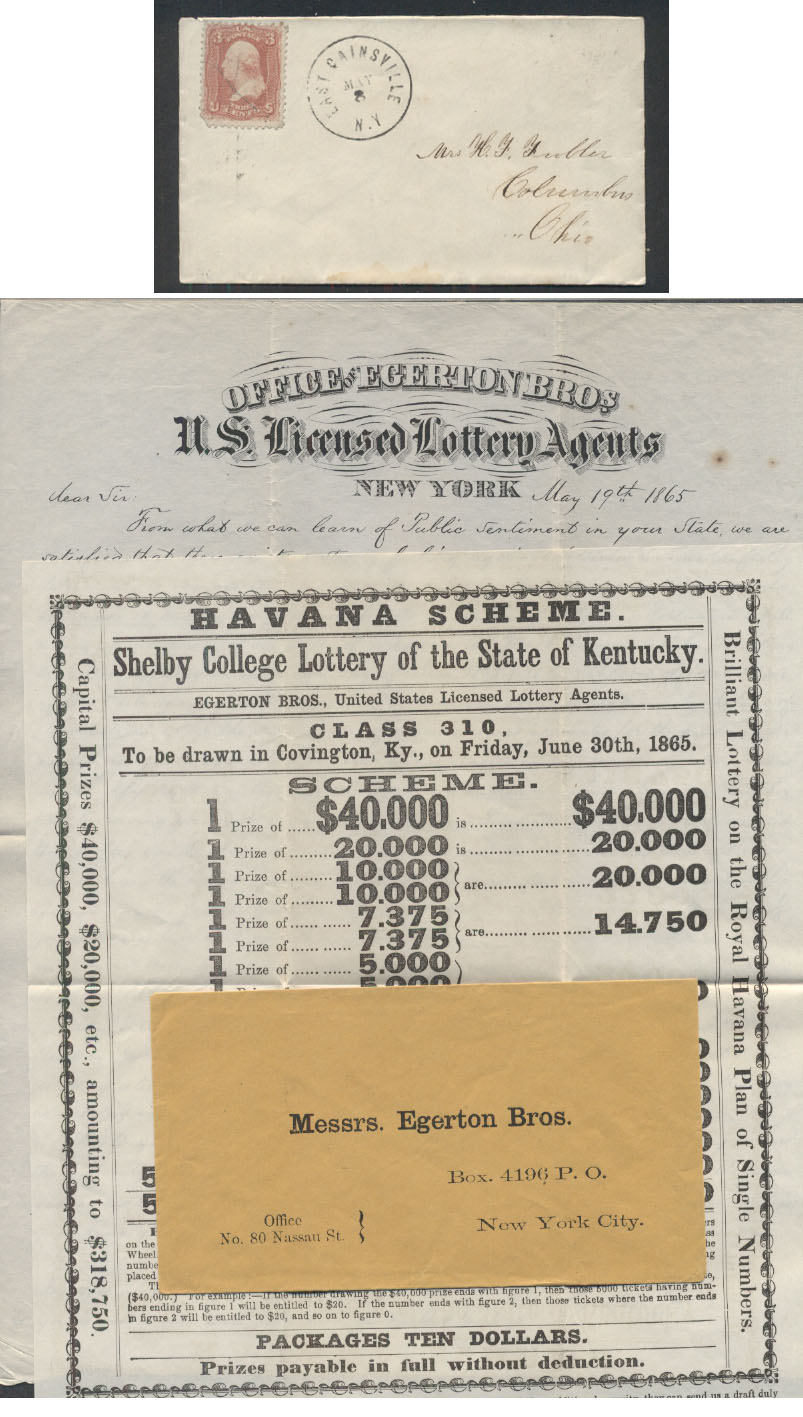 3 U.S. POSTAGE 3
U THREE CENTS S
EAST GAINSVILLE
MAY
8
N.Y
Mrs H. F.
Columbus
Ohio
OFFICE OF EGERTON BROS
U.S. Licensed Lottery Agents
NEW YORK May 19th 1865
dear Sir:
From what we can learn of Public Sentiment in your State, we are
satisfied that
HAVANA SCHEME.
Shelby College Lottery of the State of Kentucky.
EGERTON BROS., United States Licensed Lottery Agents.
CLASS 310,
To be drawn in Covington, Ky., on Friday, June 30th, 1865.
SCHEME.
1 Prize of ......$40.000 is .................. $40.000
1 Prize of ......... 20.000 is ...................... 20.000
1 Prize of ......... 10.000
1 Prize of ......... 10.000 } are ...................... 20.000
1 Prize of ...... ...... 7.375
1 Prize of ...... ...... 7.375 } are ...................... 14.750
1 Prize of ...... ...... 5.000
Capital Prizes $40,000, $20,000, etc., amounting to $318,750.
Brilliant Lottery on the Royal Havana Plan of Single Numbers.
Messrs. Egerton Bros.
Box. 4196 P. O.
Office
No. 80 Nassau St. }
New York City.
5
5
on the
Wheel.
numbe
placed
($40,000.) For example :—If the number drawing the $40,000 prize ends with figure 1, then those 5000 tickets having num-
bers ending in figure 1 will be entitled to $20. If the number ends with figure 2, then those tickets where the number ends
in figure 2 will be entitled to $20, and so on to figure 0.
PACKAGES TEN DOLLARS.
Prizes payable in full without deduction.
they can send us a draft duly